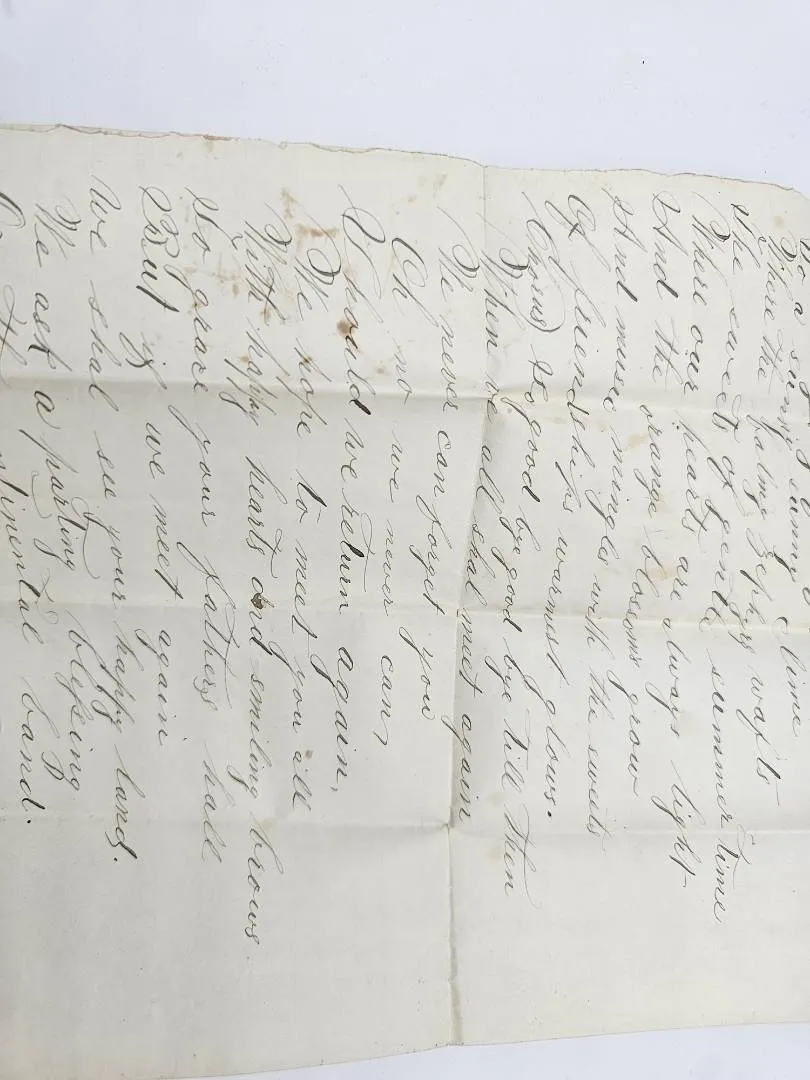 To a sunny sunny clime
Where the balmy zephyrs wafts
The sweets of gentle summer time
Where our hearts are always light
And the orange blossoms grow
And music mingles with the sweets
Of friendships warmest glows.
Chorus) So good bye good bye till then
When we all shal meet again
We never can forget you
Oh no we never can,
Should we return again,
We hope to meet you all
With happy hearts and smiling brows
To grace your fathers hall
But if we meet again
We shal su your happy land.
We ask a parting blessing
band.